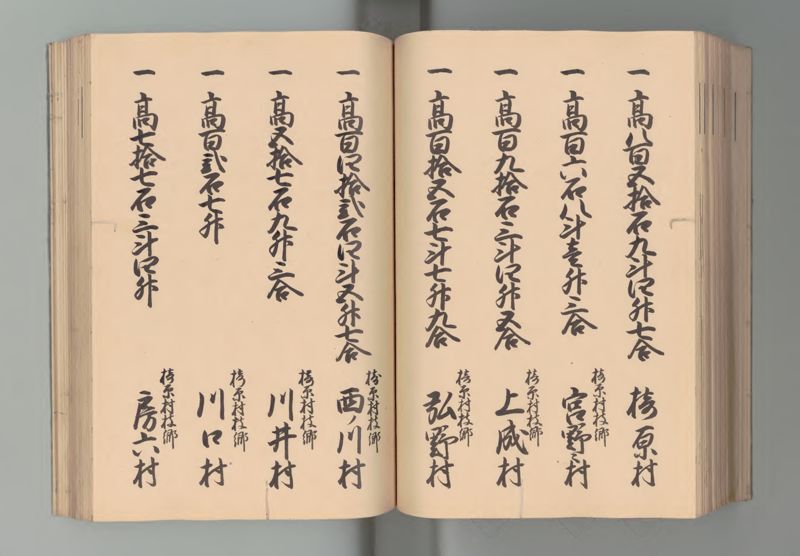 一 髙八百五拾石九斗四升七合 梼原村
一 髙百六石八斗壱升三合 梼原村枝郷 宮野々村
一 髙百九拾石三斗四升五合 梼原村枝郷 上成村
一 髙百拾五石七斗七升九合 梼原村枝郷 弘野村
一 髙百四拾弐石四斗五升七合 梼原村枝郷 西ノ川村
一 髙五拾七石九升三合 梼原村枝郷 川井村
一 髙百弐石七升 梼原村枝郷 川口村
一 髙七拾七石三斗四升 梼原村枝郷 房六村